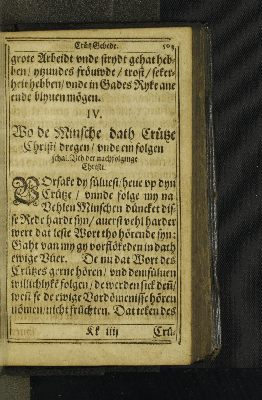 Crütz Gebede.
grote Arbeidt vnde strydt gehat heb-
ben / ytzundes fröuwde / trost / seker-
heit hebben / vnde in Gades Ryke ane
ende blyuen mögen.
IV.
Wo de Minsche dath Crütze
Christi dregen / vnd em folgen
schal. Vth der nachfolginge
Christi.
VOrsake dy süluest / heue vp dyn
Crütze / vnnde folge my na
Vehlen Minschen düncket dis-
se Rede hardt syn / auerst vehl harder
wert dat leste Wort tho hörende syn:
Gaht van my gy vorflökeden in dath
ewige Vüer. De nu dat Wort des
Crützes gerne hören / vnd demsüluen
willichlyke folgen / de werden sick den /
wen se de ewige Vordömenisse hören
nömen / nicht früchten. Dat teken des
Kk iiij
Crü-